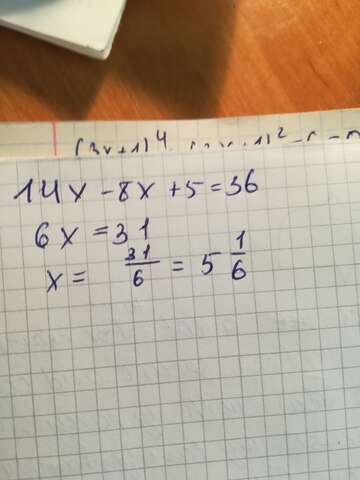 14x - 8x + 5 = 36
6x = 31
x = 31/6 = 5 1/6